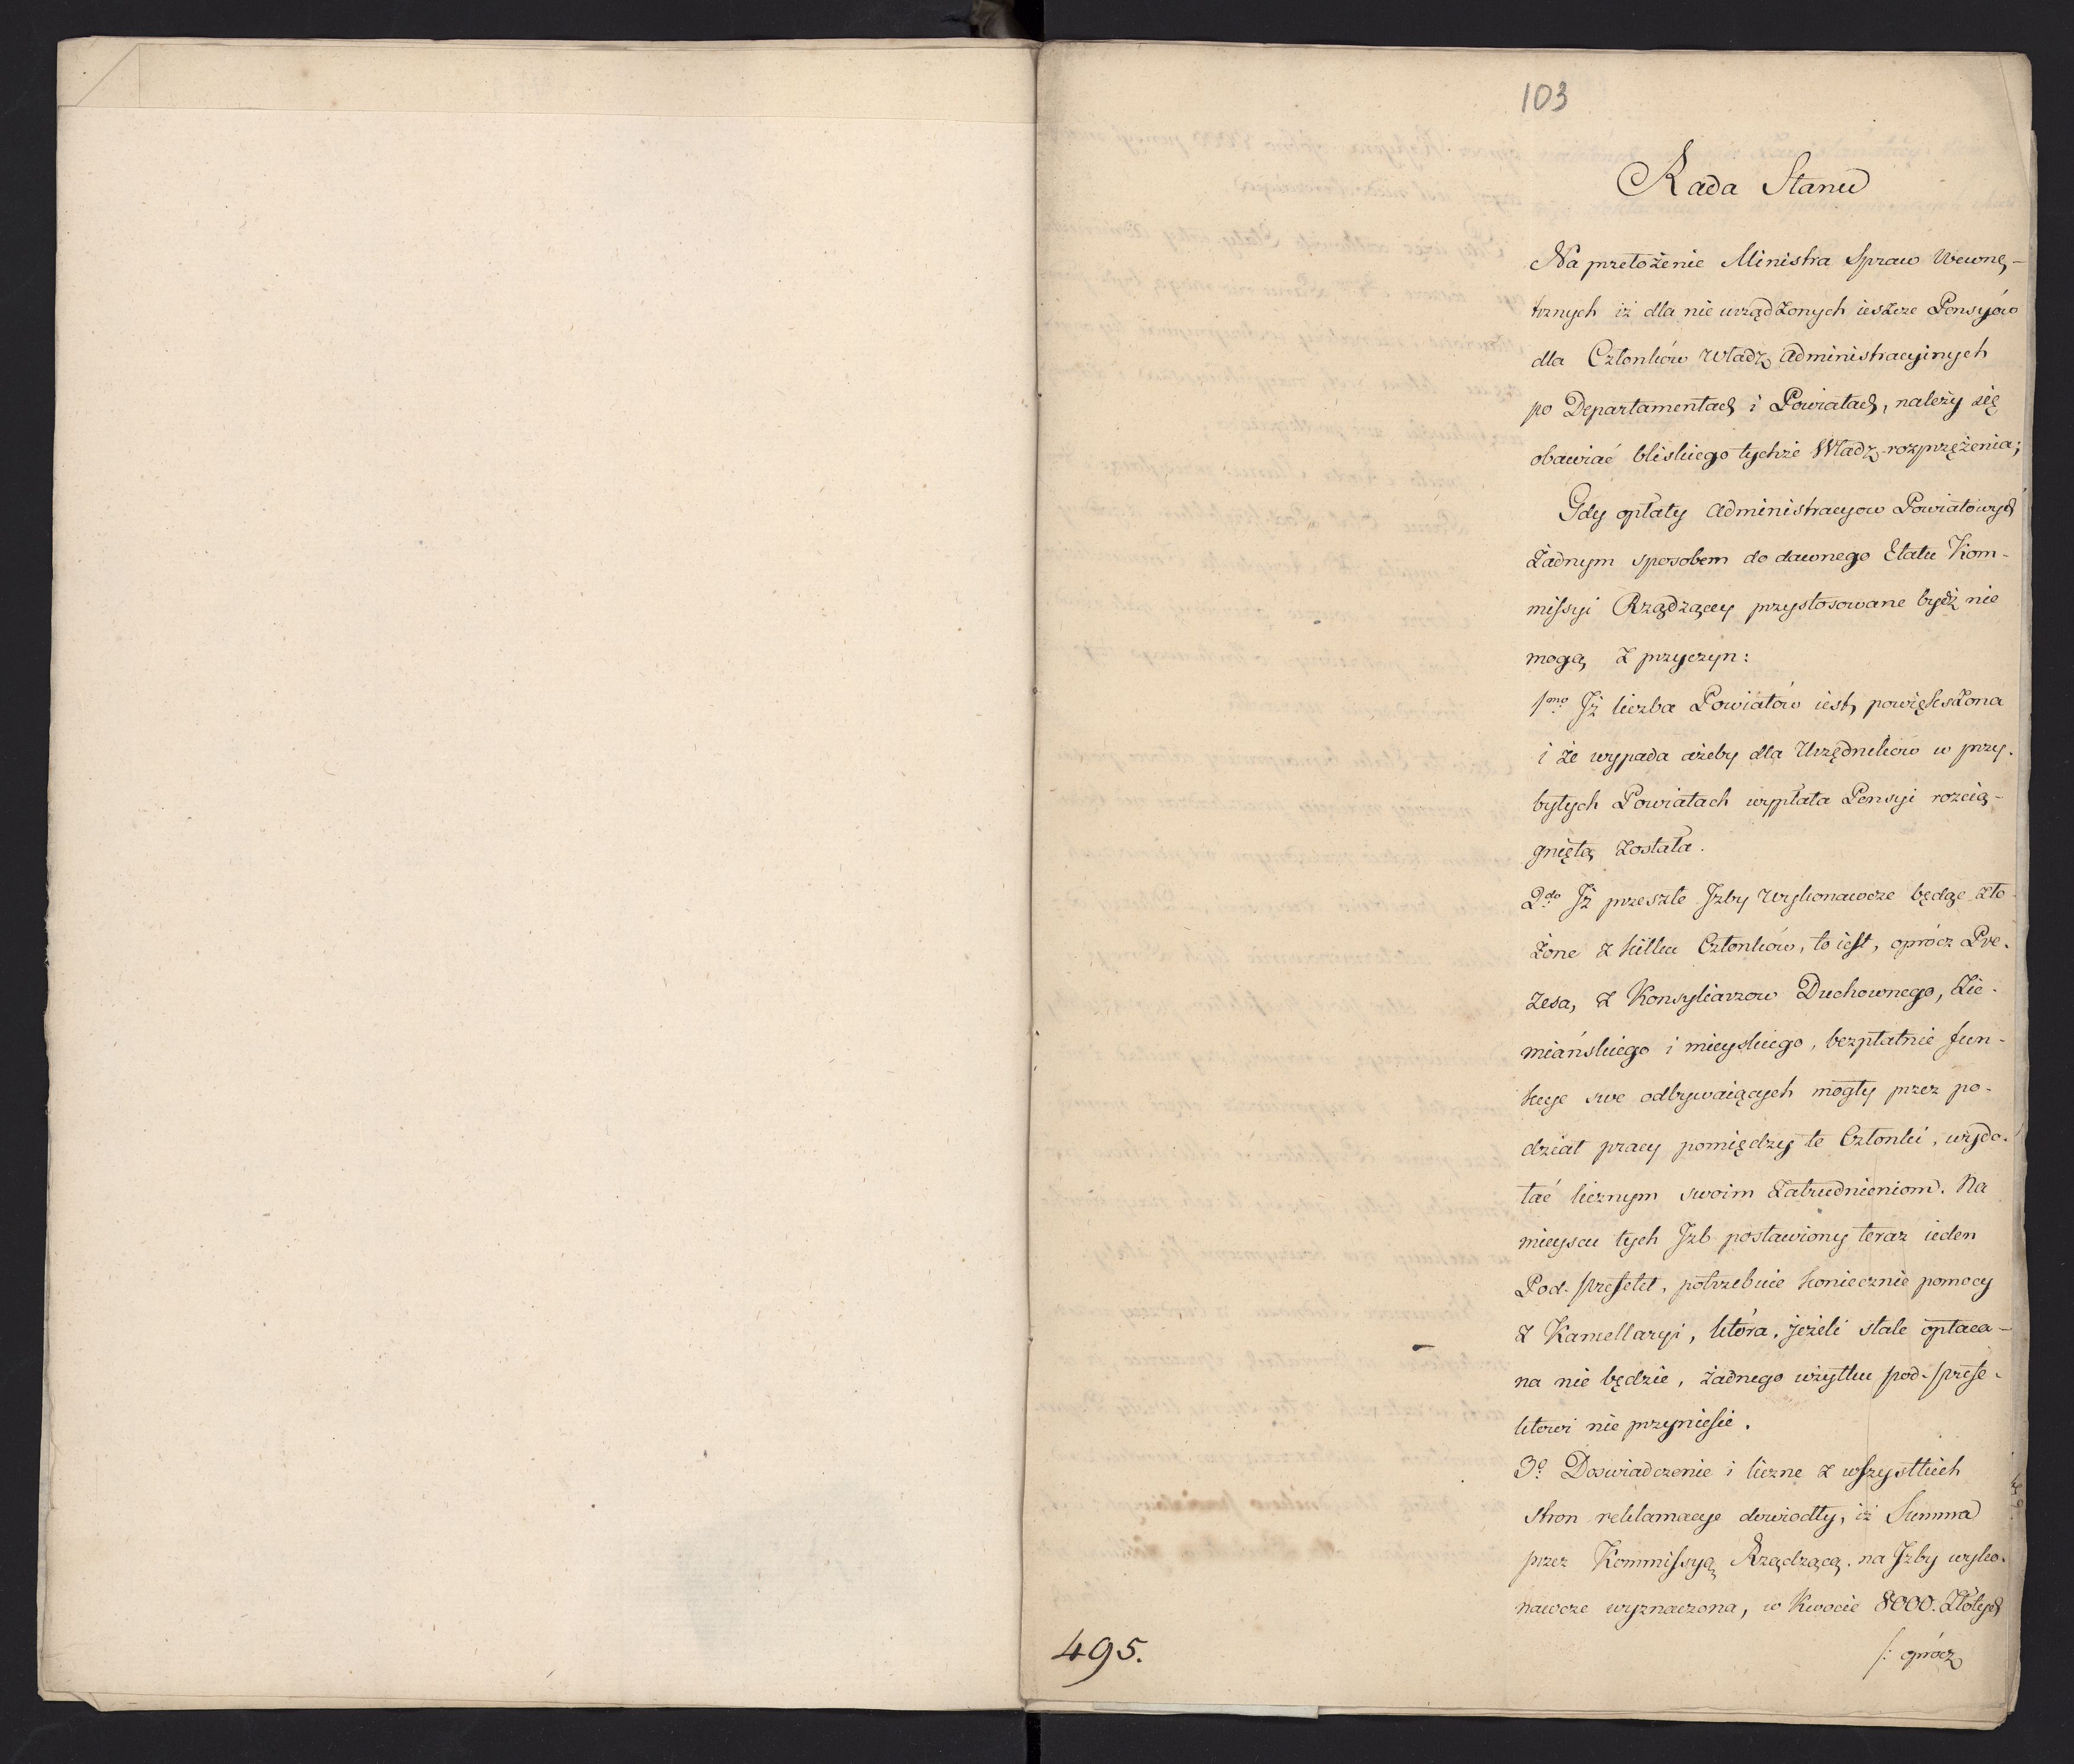 103
Rada Stanu
Na przełożenie Ministra Spraw Wewnę-
trznych iż dla nie urządzonych ieszcze Pensyów
dla Członków Władz Administracyinych
po Departamentach i Powiatach, należy się
obawiać bliskiego tychże Władz rozprzężenia;
Gdy opłaty Administracyow Powiatowych
żadnym sposobem do dawnego Etatu Kom-
missyi Rządzącey przystosowane bydź nie
mogą z przyczyn:
1mo Iż liczba Powiatów iest powiększona
i że wypada ażeby dla Urzędników w przy-
bytych Powiatach wypłata Pensyi rozcią-
gniętą została.
2do Iż przeszłe Izby Wykonawcze będąc zło-
żone z kilku Członków, to iest, oprócz Pre-
zesa, z Konsyliarzow Duchownego, Zie-
miańskiego i mieyskiego, bezpłatnie fun-
kcye swe odbywaiących mogły przez po-
dział pracy pomiędzy te Członki, wydo-
łać licznym swoim zatrudnieniom. Na
mieyscu tych Izb postawiony teraz ieden
Pod-prefekt, potrzebuie koniecznie pomocy
z Kancellaryi, która, jeżeli stale opłaca-
na nie będzie, żadnego użytku pod-prefe-
ktowi nie przyniesie.
3o Doswiadczenie i liczne z wszystkich
stron reklamacye dowiodły, iż Summa
przez Kommissyą Rządzącą na Izby wyko-
nawcze wyznaczona, w kwocie 8000. Złotych
/: oprócz
495.